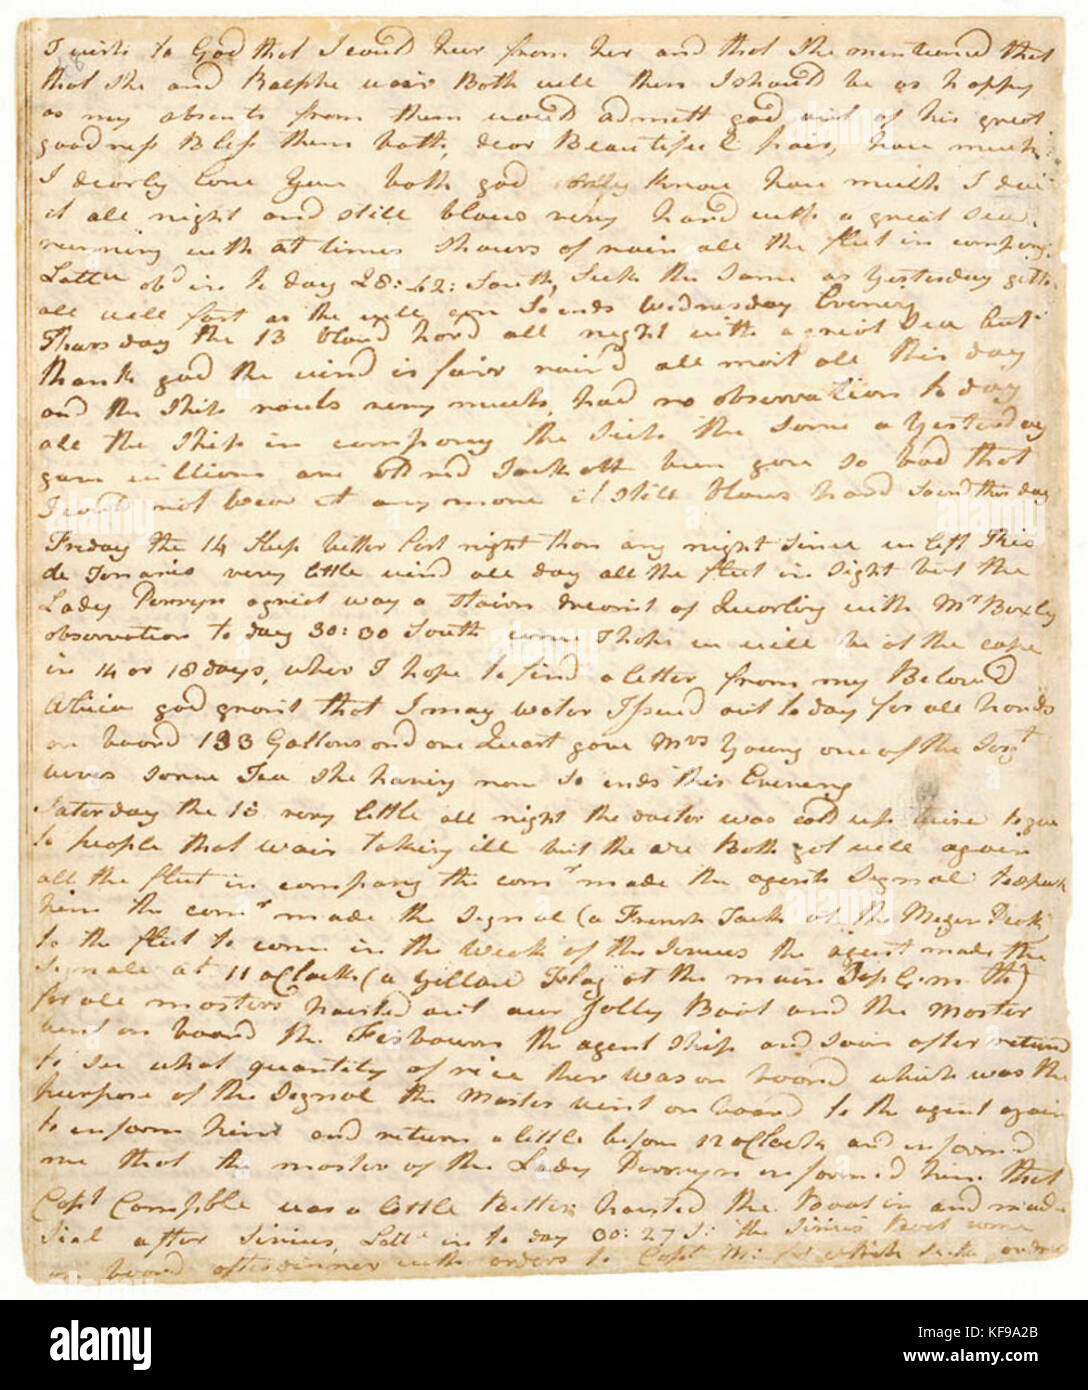 I wish to God that I could heer from her and that She mentioned that
that She and Ralphe wair Both well then I Should be as happy
as my absents from them would admitt god out of his great
goodness Bless them both, dear Beautiful hear, how much
I dearly love You both god only know how much I doe
it all night and still blows very hard with a great Sea
running with at times Showrs of rain all the fleet in company
Latt obd in to day 28:42: South, Sick the Same as Yesterday
all well fast as the well can So ends Wednesday Evening
Thursday the 13 blowd hard all night with a great Sea but
thank god the wind is fair rain'd all most all this day
and the Ship rouls very much, had no observation to day
all the Ship in company the Sick the Same a Yesterday
gave williams one old red Jackott been gon so bad that
I could not wear it any more it Still blows hard So end this day
Friday the 14 Sleep better last night than any night Since we left
de Jenario very little wind all day all the fleet in Sight but the
Lady Penrhyn agreat way a Stairn dreamt of Quorling with Mr Boxly
observation to day 30:30 South I hope we will be at the cape
in 14 or 18 days, wher I hope to find a letter from my Beloved
Alicia god grant that I may water Issued out to day for all hands
on board 133 Gallons and one Quart gave Mrs Young one of the Sergt
wives Some Tea She having non So ends this Evening
Saterday the 15 very little all night the doctor was cald up twise to
to people that wair taking ill but the are Both got well again
all the fleet in company the comr made the agents Signal to Speak
him the comr made the Signal (a French Jack at the Mizen Peek)
to the fleet to come in the Week of the Sirius the agent made the
Signale at 11 oClock (a Yillow Flag at the main Top G.m. th)
for all masters hoisted out our Jolly Boat and the Master
went on board the Fishbourn the agent Ship and Soon after returnd
to See what quantity of rice ther was on board which was the
purpose of the Signal the Master went on board to the agent again
to inform him and return a little before 12 oClock and informed
me that the master of the Lady Penrhyn informed him that
Capt Campble was a little Better hoisted the Boat in and made
Sial after Sirius, Latt in to day 30:27 S: the Sirius Boat come
on board after dinner with orders to Capt M: for which Sick
alamy
Image ID: KF9A2B
www.alamy.com